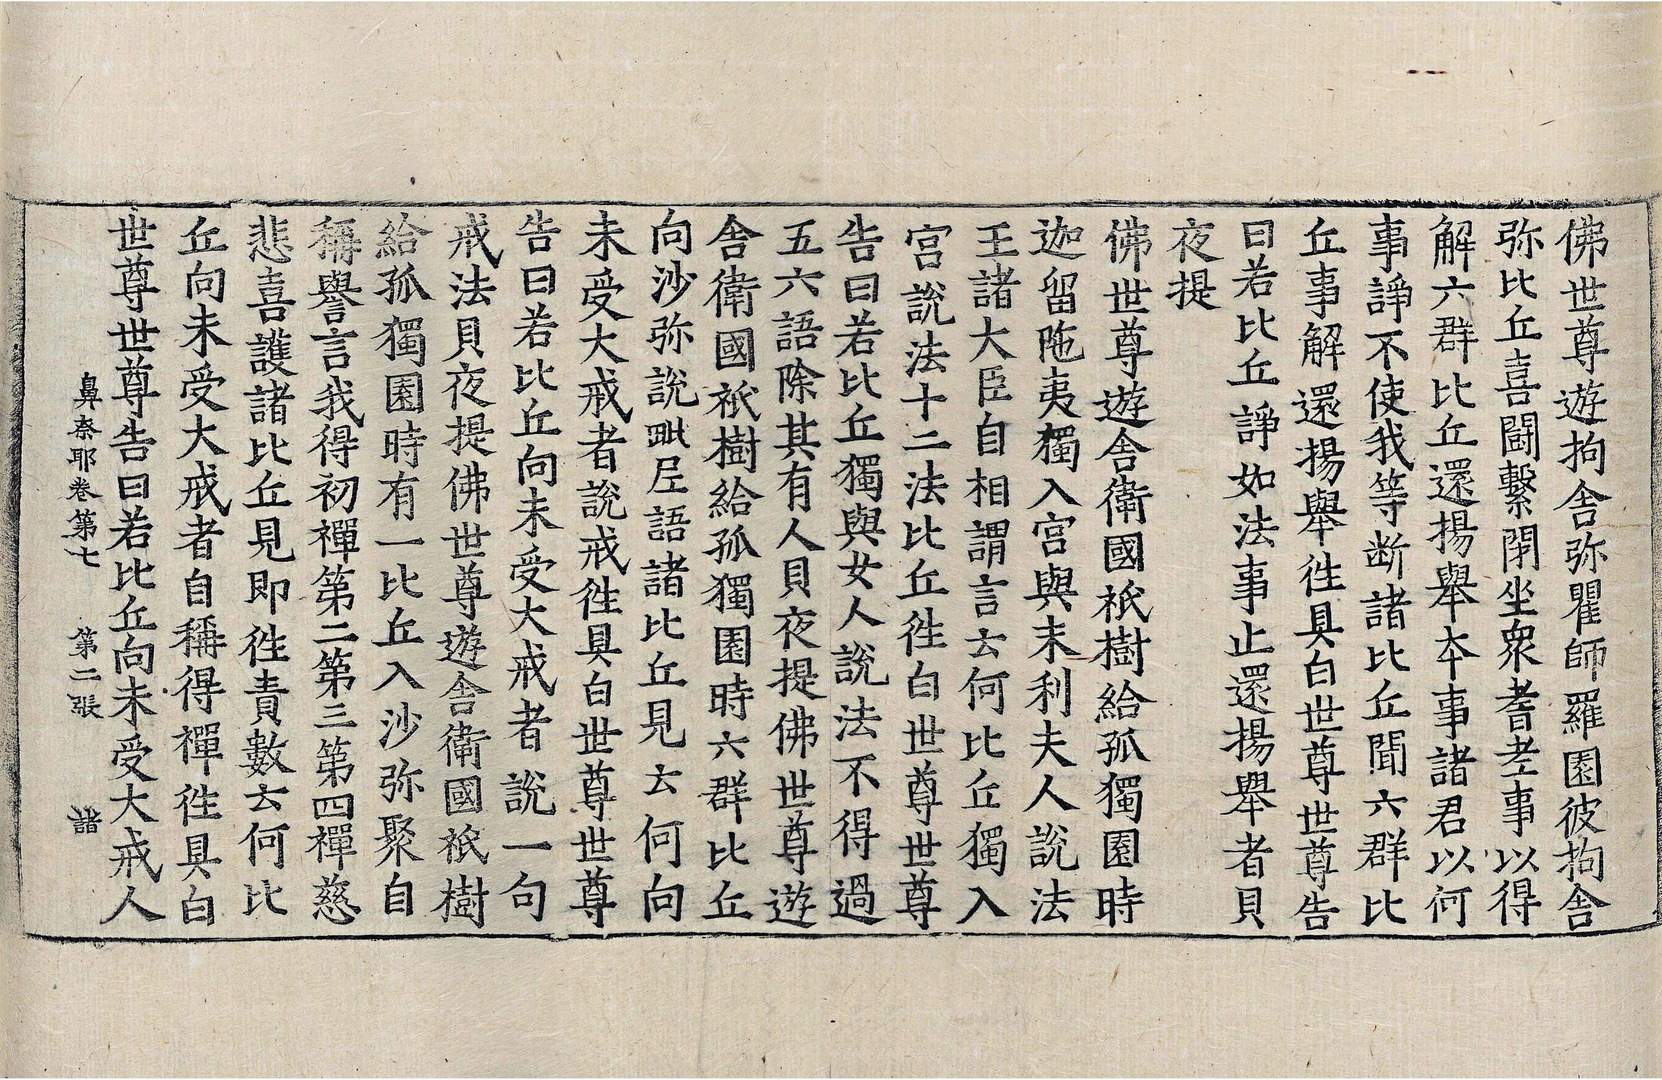 佛世尊遊拘舍弥瞿師羅園彼拘舍
弥比丘喜鬪繫閉坐衆耆老事以得
解六群比丘還揚舉本事諸君以何
事諍不使我等断諸比丘聞六群比
丘事解還揚舉徃具白世尊世尊告
曰若比丘諍如法事止還揚舉者貝
夜提
佛世尊遊舍衛國祇樹給孤獨園時
迦留陁夷獨入宫與末利夫人說法
王諸大臣自相謂言云何比丘獨入
宫說法十二法比丘徃白世尊世尊
告曰若比丘獨與女人說法不得過
五六語除其有人貝夜提佛世尊遊
舍衛國祇樹給孤獨園時六群比丘
向沙弥說毗尼語諸比丘見云何向
未受大戒者說戒徃具白世尊世尊
告曰若比丘向未受大戒者說一句
戒法貝夜提佛世尊遊舍衛國祇樹
給孤獨園時有一比丘入沙弥聚自
稱譽言我得初禪第二第三第四禪慈
悲喜護諸比丘見即徃責數云何比
丘向未受大戒者自稱得禪徃具白
世尊世尊告曰若比丘向未受大戒人
鼻奈耶卷第七 第二張 諸